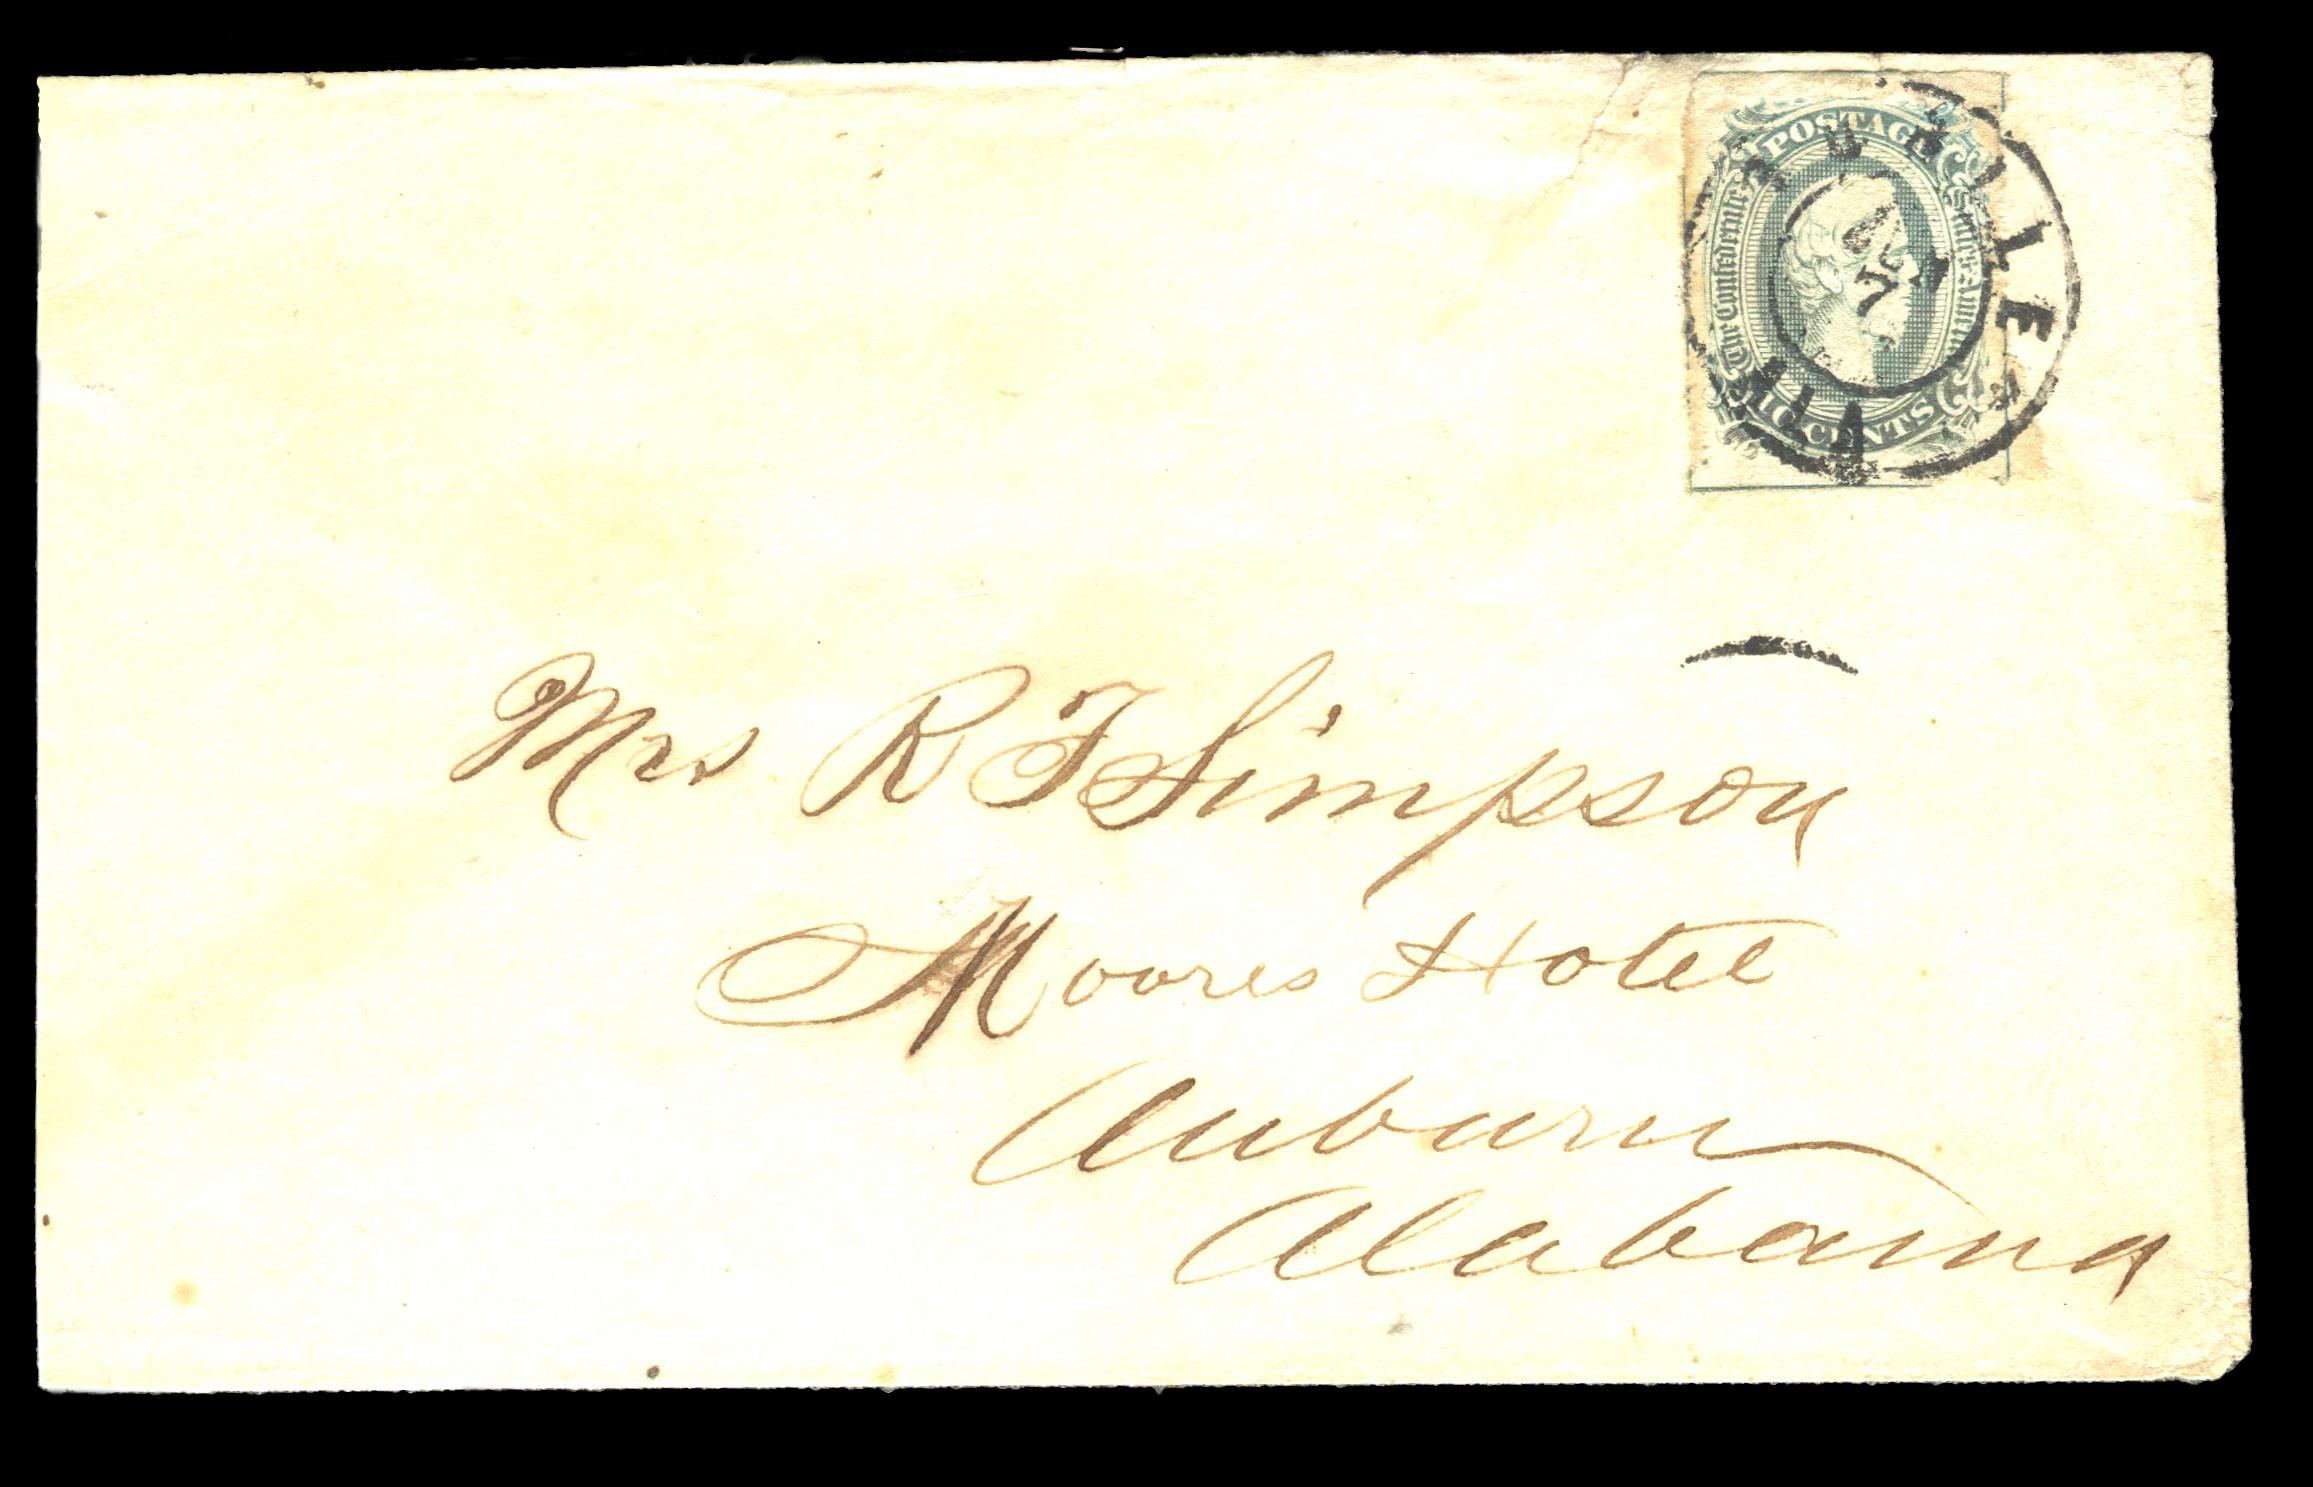 POSTAGE
The Confederate
States of America
10 CENTS
7
VILLE
Mrs R F Simpson
Moores Hotel
Auburn
Alabama